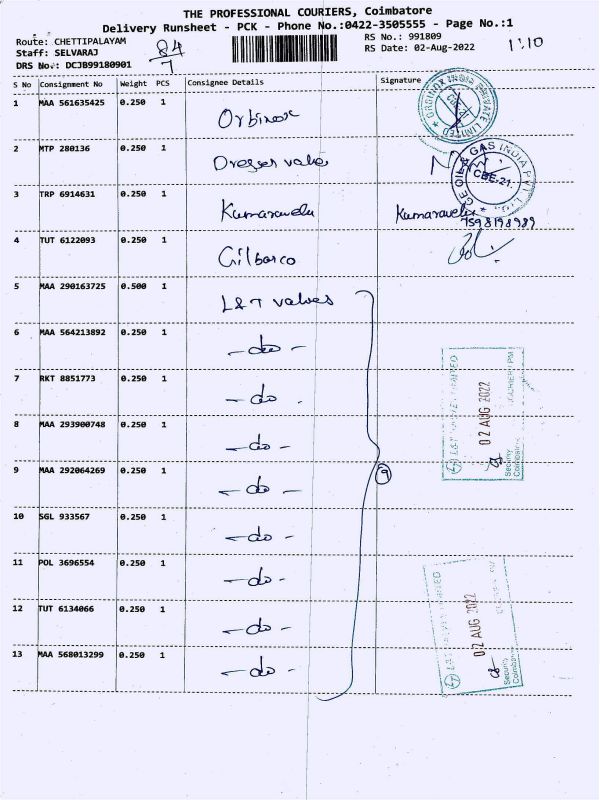 THE PROFESSIONAL COURIERS, Coimbatore
Delivery Runsheet - PCK - Phone No.:0422-3505555 - Page No.:1
Route: CHETTIPALAYAM 84/7 RS No.: 991809
Staff: SELVARAJ RS Date: 02-Aug-2022 11:10
DRS No.: DCJB99180901
S No Consignment No Weight PCS Consignee Details Signature
1 MAA 561635425 0.250 1 Orbinox
2 MTP 280136 0.250 1 Dresser valve
3 TRP 6914631 0.250 1 Kumaravelu Kumaravelu
7598198989
4 TUT 6122093 0.250 1 Gilbarco
5 MAA 290163725 0.500 1 L&T valves
6 MAA 564213892 0.250 1 -do-
7 RKT 8851773 0.250 1 -do-
8 MAA 293900748 0.250 1 -do-
9 MAA 292064269 0.250 1 -do-
9
10 SGL 933567 0.250 1 -do-
11 POL 3696554 0.250 1 -do-
12 TUT 6134066 0.250 1 -do-
13 MAA 568013299 0.250 1 -do-
ORBINOX INDIA PRIVATE LIMITED
GE OIL & GAS INDIA PVT LTD.
CBE-21.
L&T VALVES LIMITED
02 AUG 2022
Security
Coimbatore
L&T VALVES LIMITED
02 AUG 2022
Security
Coimbatore